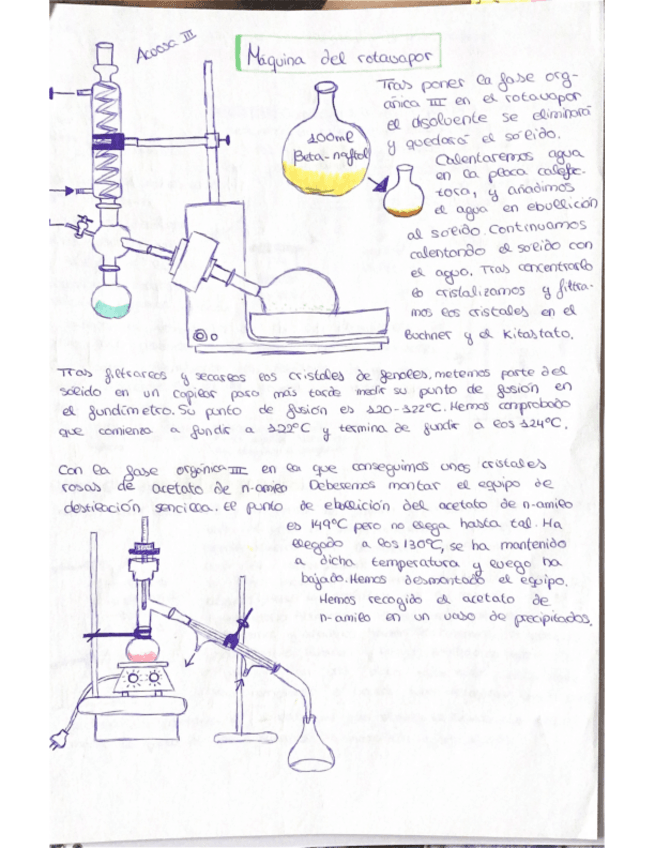 Acuosa III
Máquina del rotavapor
100ml
Beta-naftol
Tras poner la fase org-
ánica III en el rotavapor
el disolvente se eliminará
y quedará el sólido.
Calentaremos agua
en la placa calefac-
tora, y añadimos
el agua en ebullición
al sólido. Continuamos
calentando el sólido con
el agua. Tras concentrarlo
lo cristalizamos y filtra-
mos los cristales en el
Buchner y el Kitastato.
Tras filtrarlos y secarlos los cristales de fenoles, metemos parte del
sólido en un capilar para más tarde medir su punto de fusión en
el fundímetro. Su punto de fusión es 120-122ºC. Hemos comprobado
que comienza a fundir a 122ºC y termina de fundir a los 124ºC.
Con la fase orgánica III en la que conseguimos unos cristales
rosas de acetato de n-amilo Deberemos montar el equipo de
destilación sencilla. El punto de ebullición del acetato de n-amilo
es 149ºC pero no llega hasta tal. Ha
llegado a los 130ºC, se ha mantenido
a dicha temperatura y luego ha
bajado. Hemos desmontado el equipo.
Hemos recogido el acetato de
n-amilo en un vaso de precipitados.